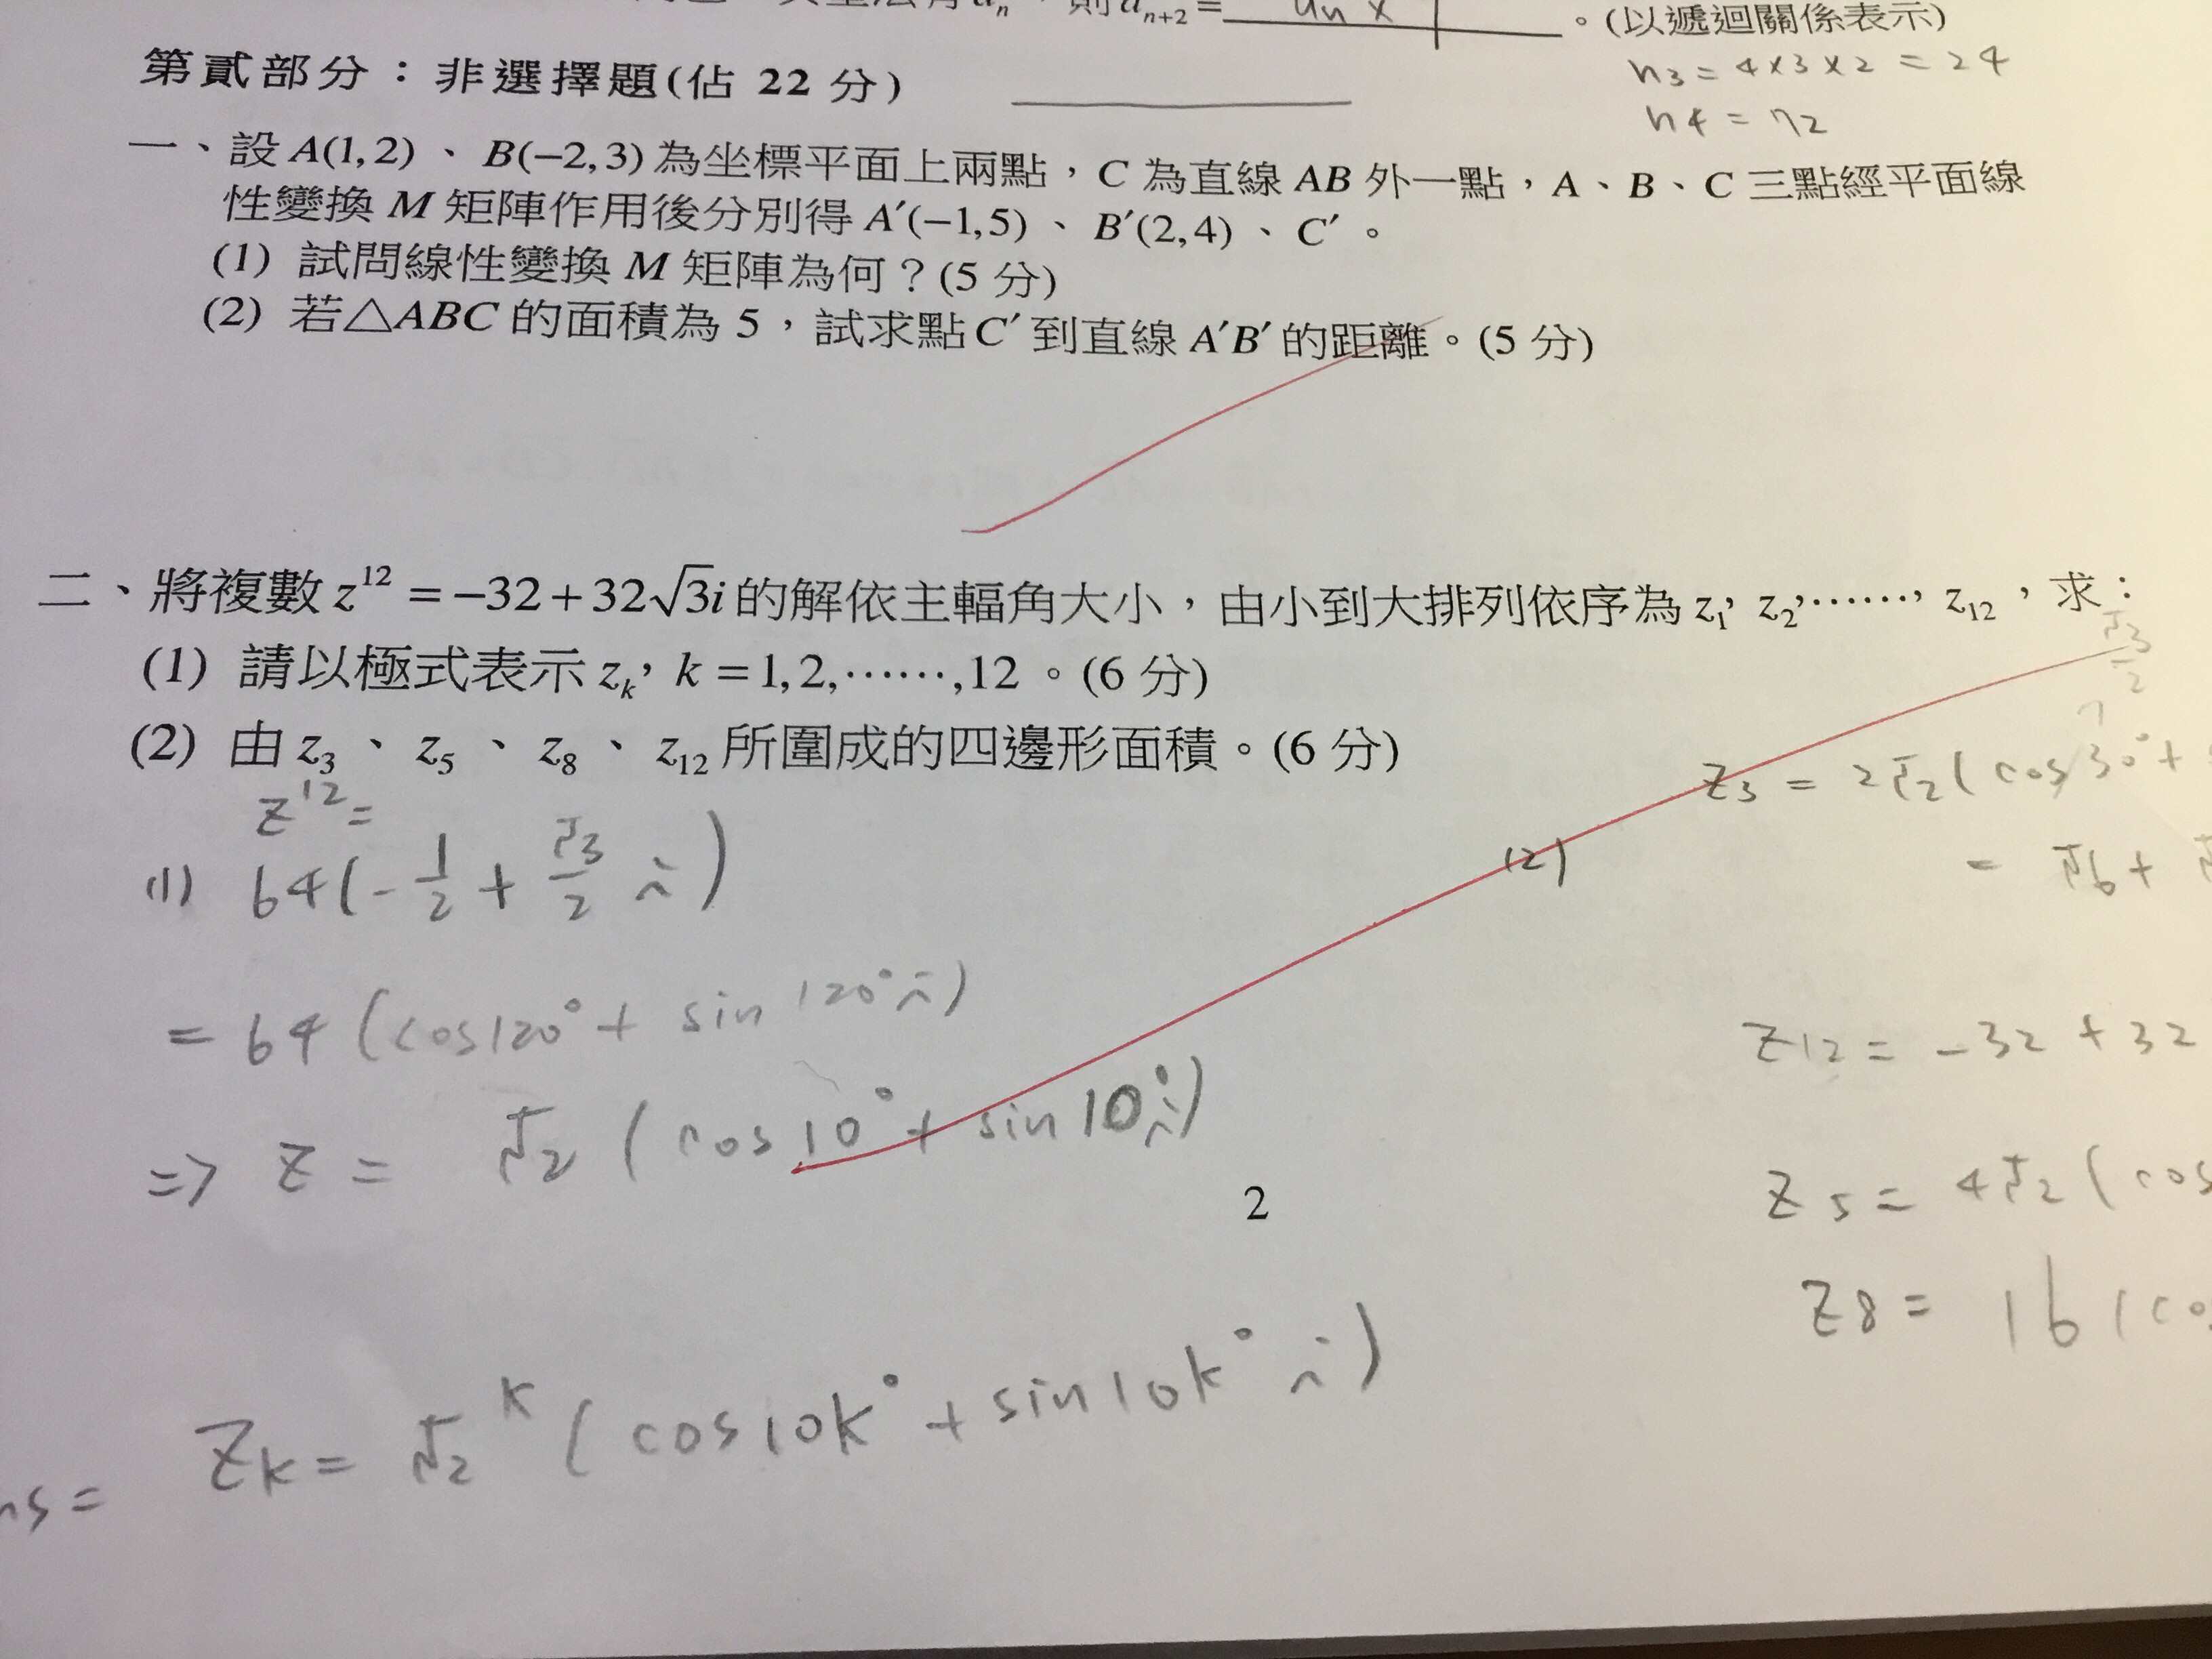 則 aₙ₊₂=　aₙ x　。(以遞迴關係表示)
n3 = 4×3×2 = 24
n4 = 72
第貳部分：非選擇題(佔 22 分)
一、設 A(1,2) 、 B(−2,3) 為坐標平面上兩點，C 為直線 AB 外一點，A、B、C 三點經平面線
性變換 M 矩陣作用後分別得 A′(−1,5) 、 B′(2,4) 、 C′ 。
(1) 試問線性變換 M 矩陣為何？(5 分)
(2) 若△ABC 的面積為 5，試求點 C′ 到直線 A′B′ 的距離。(5 分)
二、將複數 z¹² = −32+32√3i 的解依主輻角大小，由小到大排列依序為 z₁, z₂,⋯⋯, z₁₂，求：
(1) 請以極式表示 zₖ, k =1,2,⋯⋯,12 。(6 分)
(2) 由 z₃ 、 z₅ 、 z₈ 、 z₁₂ 所圍成的四邊形面積。(6 分)
z¹² =
(1) 64(-1/2 + √3/2 i)
= 64 (cos120° + sin 120° i)
=> z = √2 ( cos 10° + sin 10° i)
Zk = √2^k ( cos10k° + sin10k° i )
(2)
√3/2
Z3 = 2√2 ( cos30° +
= √6 +
Z12 = -32 + 32
Z5 = 4√2 ( cos
Z8 = 16 (co
2